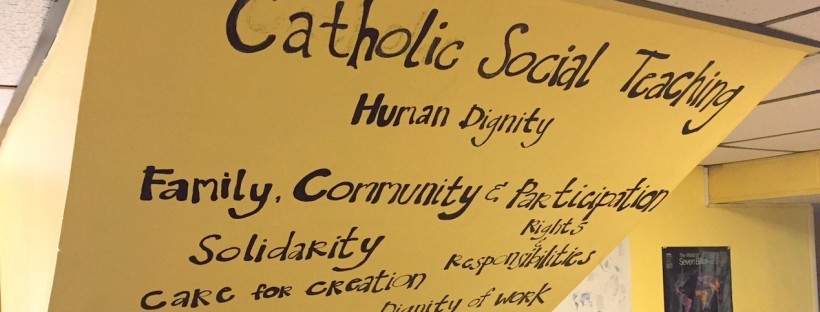 Catholic Social Teaching
Human Dignity
Family, Community & Participation
Rights
&
Solidarity
Responsibilities
Care for Creation
Dignity of Work
The World of
Seven Billion